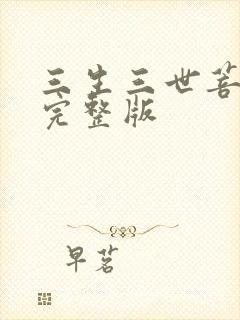 三生三世菩
完整版
早茗